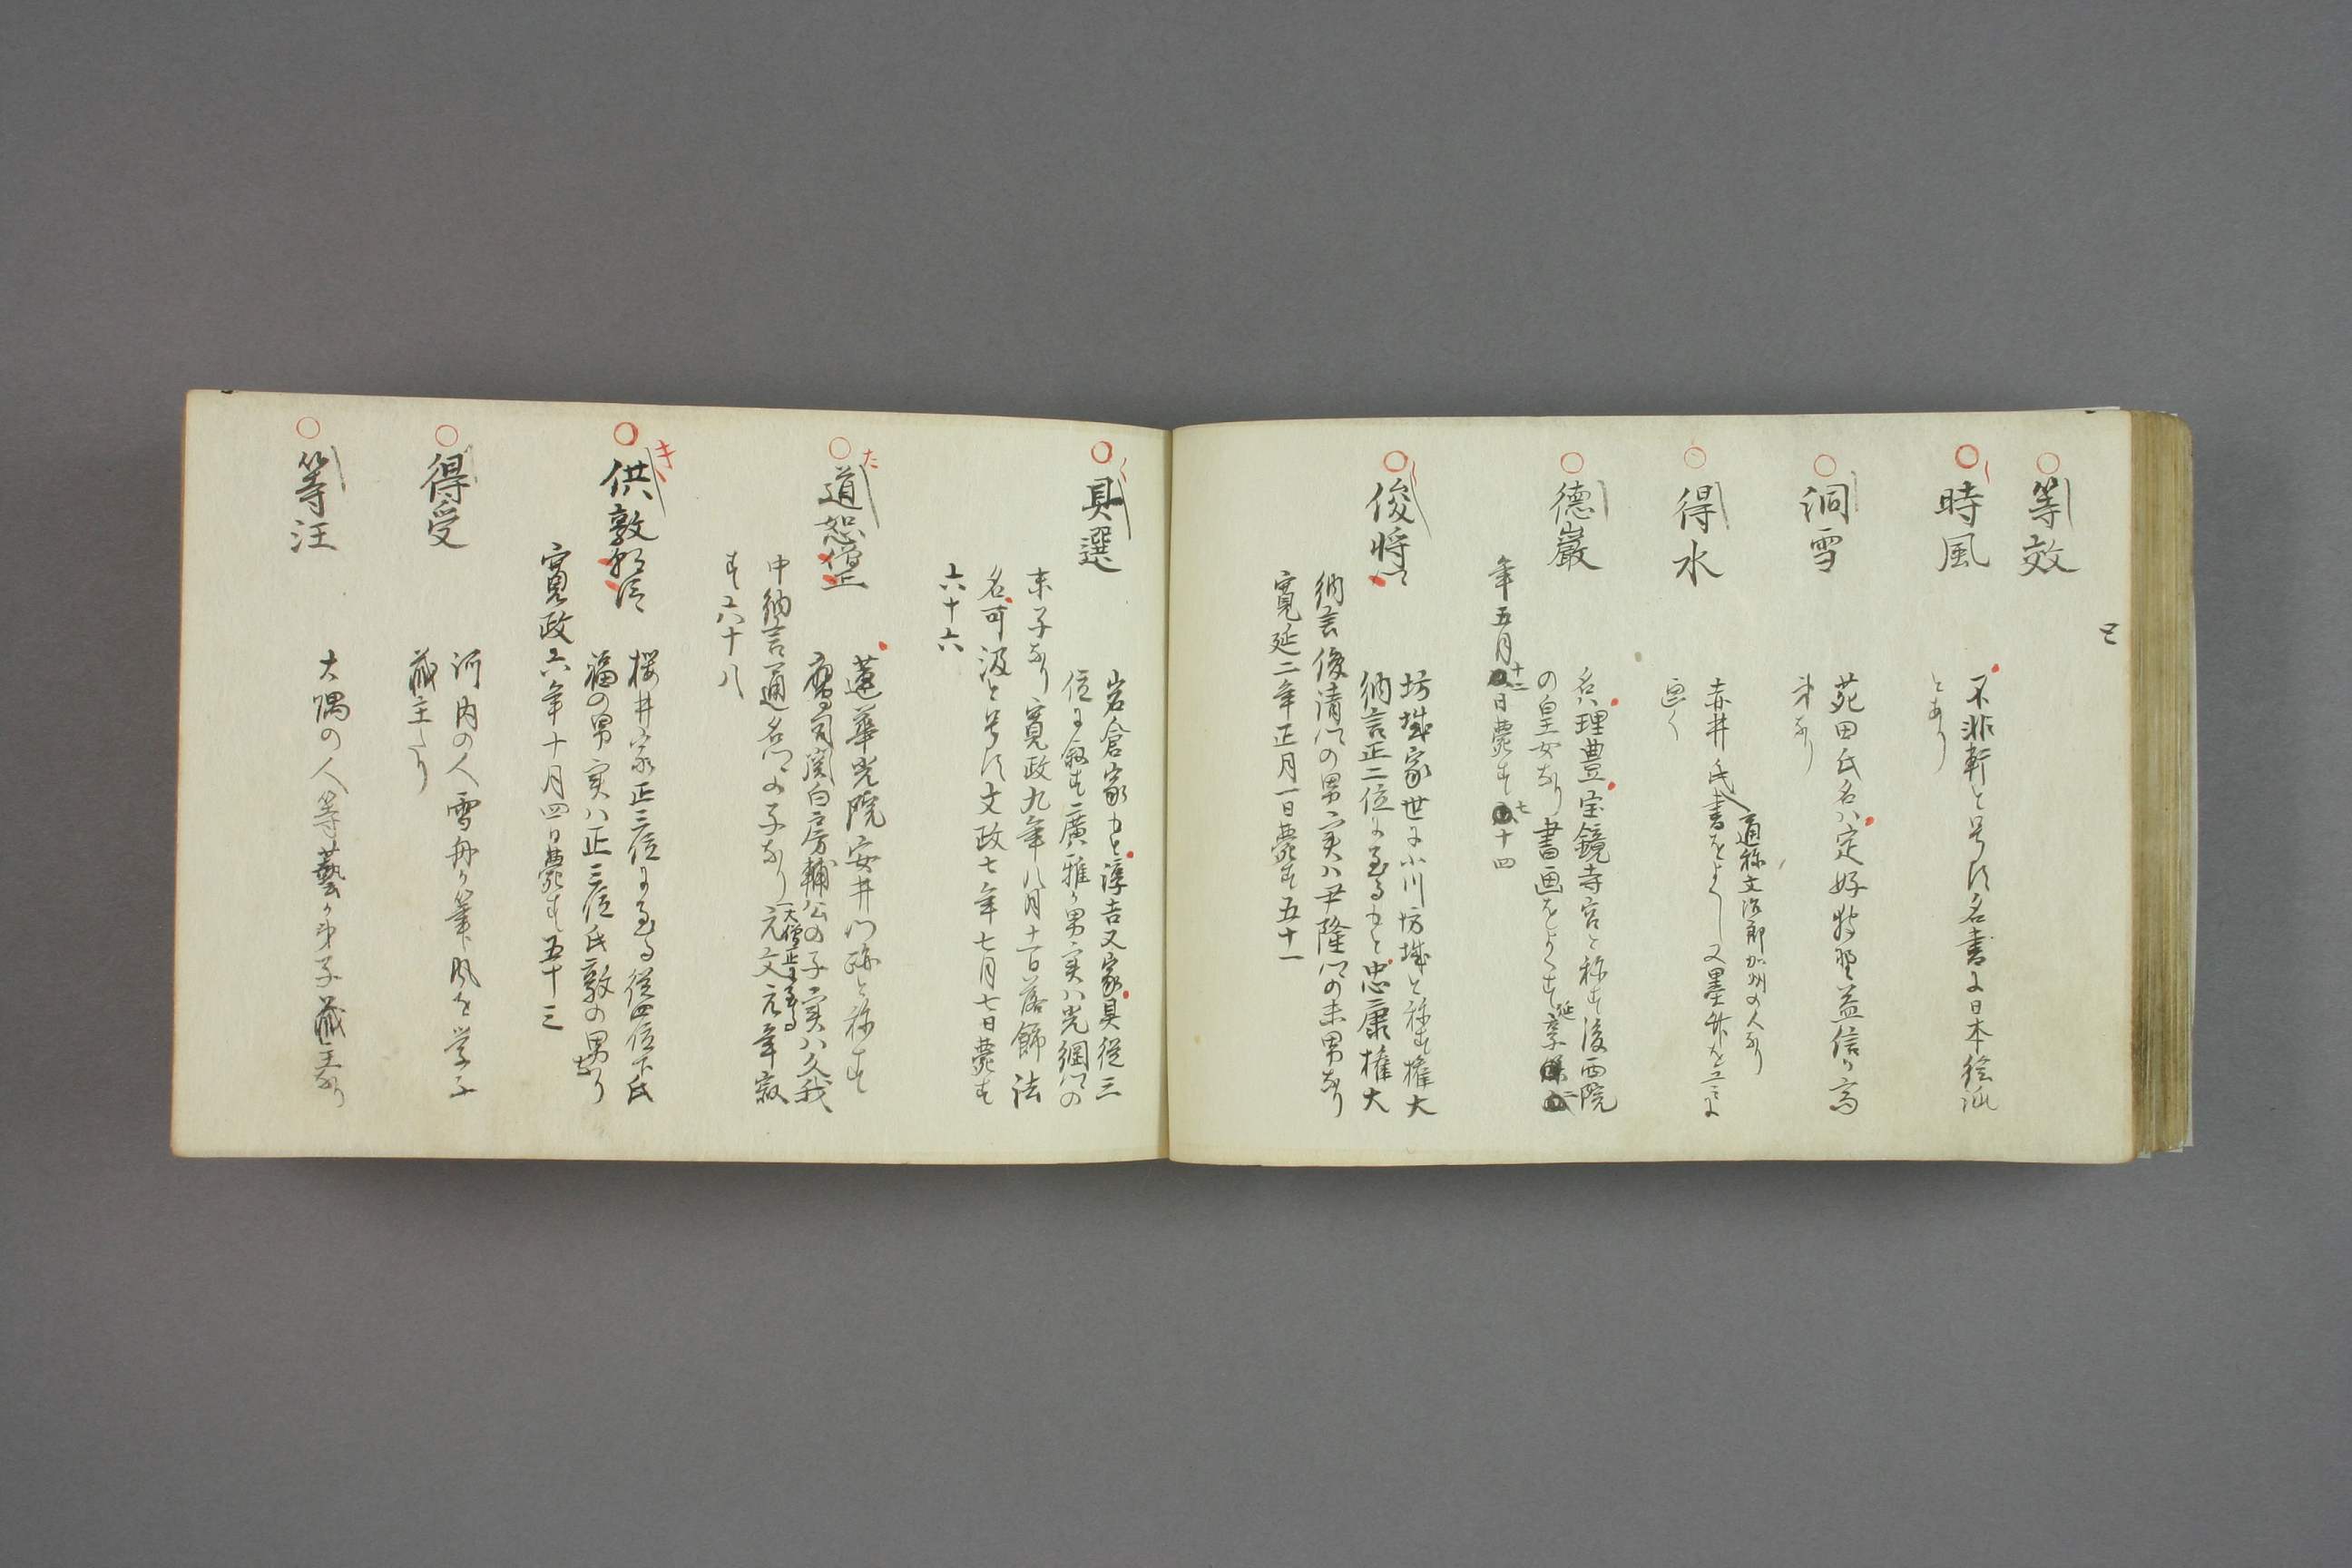 と
等效
時風
不非軒と号す名書に日本絵所
とあり
洞雪
苑田氏名ハ定好狩野益信か高
弟なり
得水
赤井氏書をよくし又墨竹を
通称文次郎加州の人なり
画く
徳巌
名ハ理豊宝鏡寺宮と称す後西院
の皇女なり書画をよくす延享二
年五月十二日薨す七十四
俊将卿
坊城家世に小川坊城と称す権大
納言正二位に至る初め忠康権大
納言俊清卿の男実ハ尹隆卿の末男なり
寛延二年正月一日薨す五十一
具選
岩倉家初と淳吉又家具従三
位に叙す廣雅か男実ハ光綱卿の
末子なり寛政九年八月十一日落飾法
名可汲と号す文政七年七月七日薨す
六十六
た
道恕僧正
蓮華光院安井門跡と称す
鷹司関白房輔公の子実ハ久我
中納言通名卿の子なり元文元年寂
大僧正に至る
す六十八
き
供敦朝臣
桜井家正三位に至る従四位下氏
福の男実ハ正三位氏敦の男なり
寛政六年十月四日薨す五十三
得受
河内の人雪舟か筆風を学ふ
蔵主たり
等汪
大隅の人等藝か弟子蔵主なり